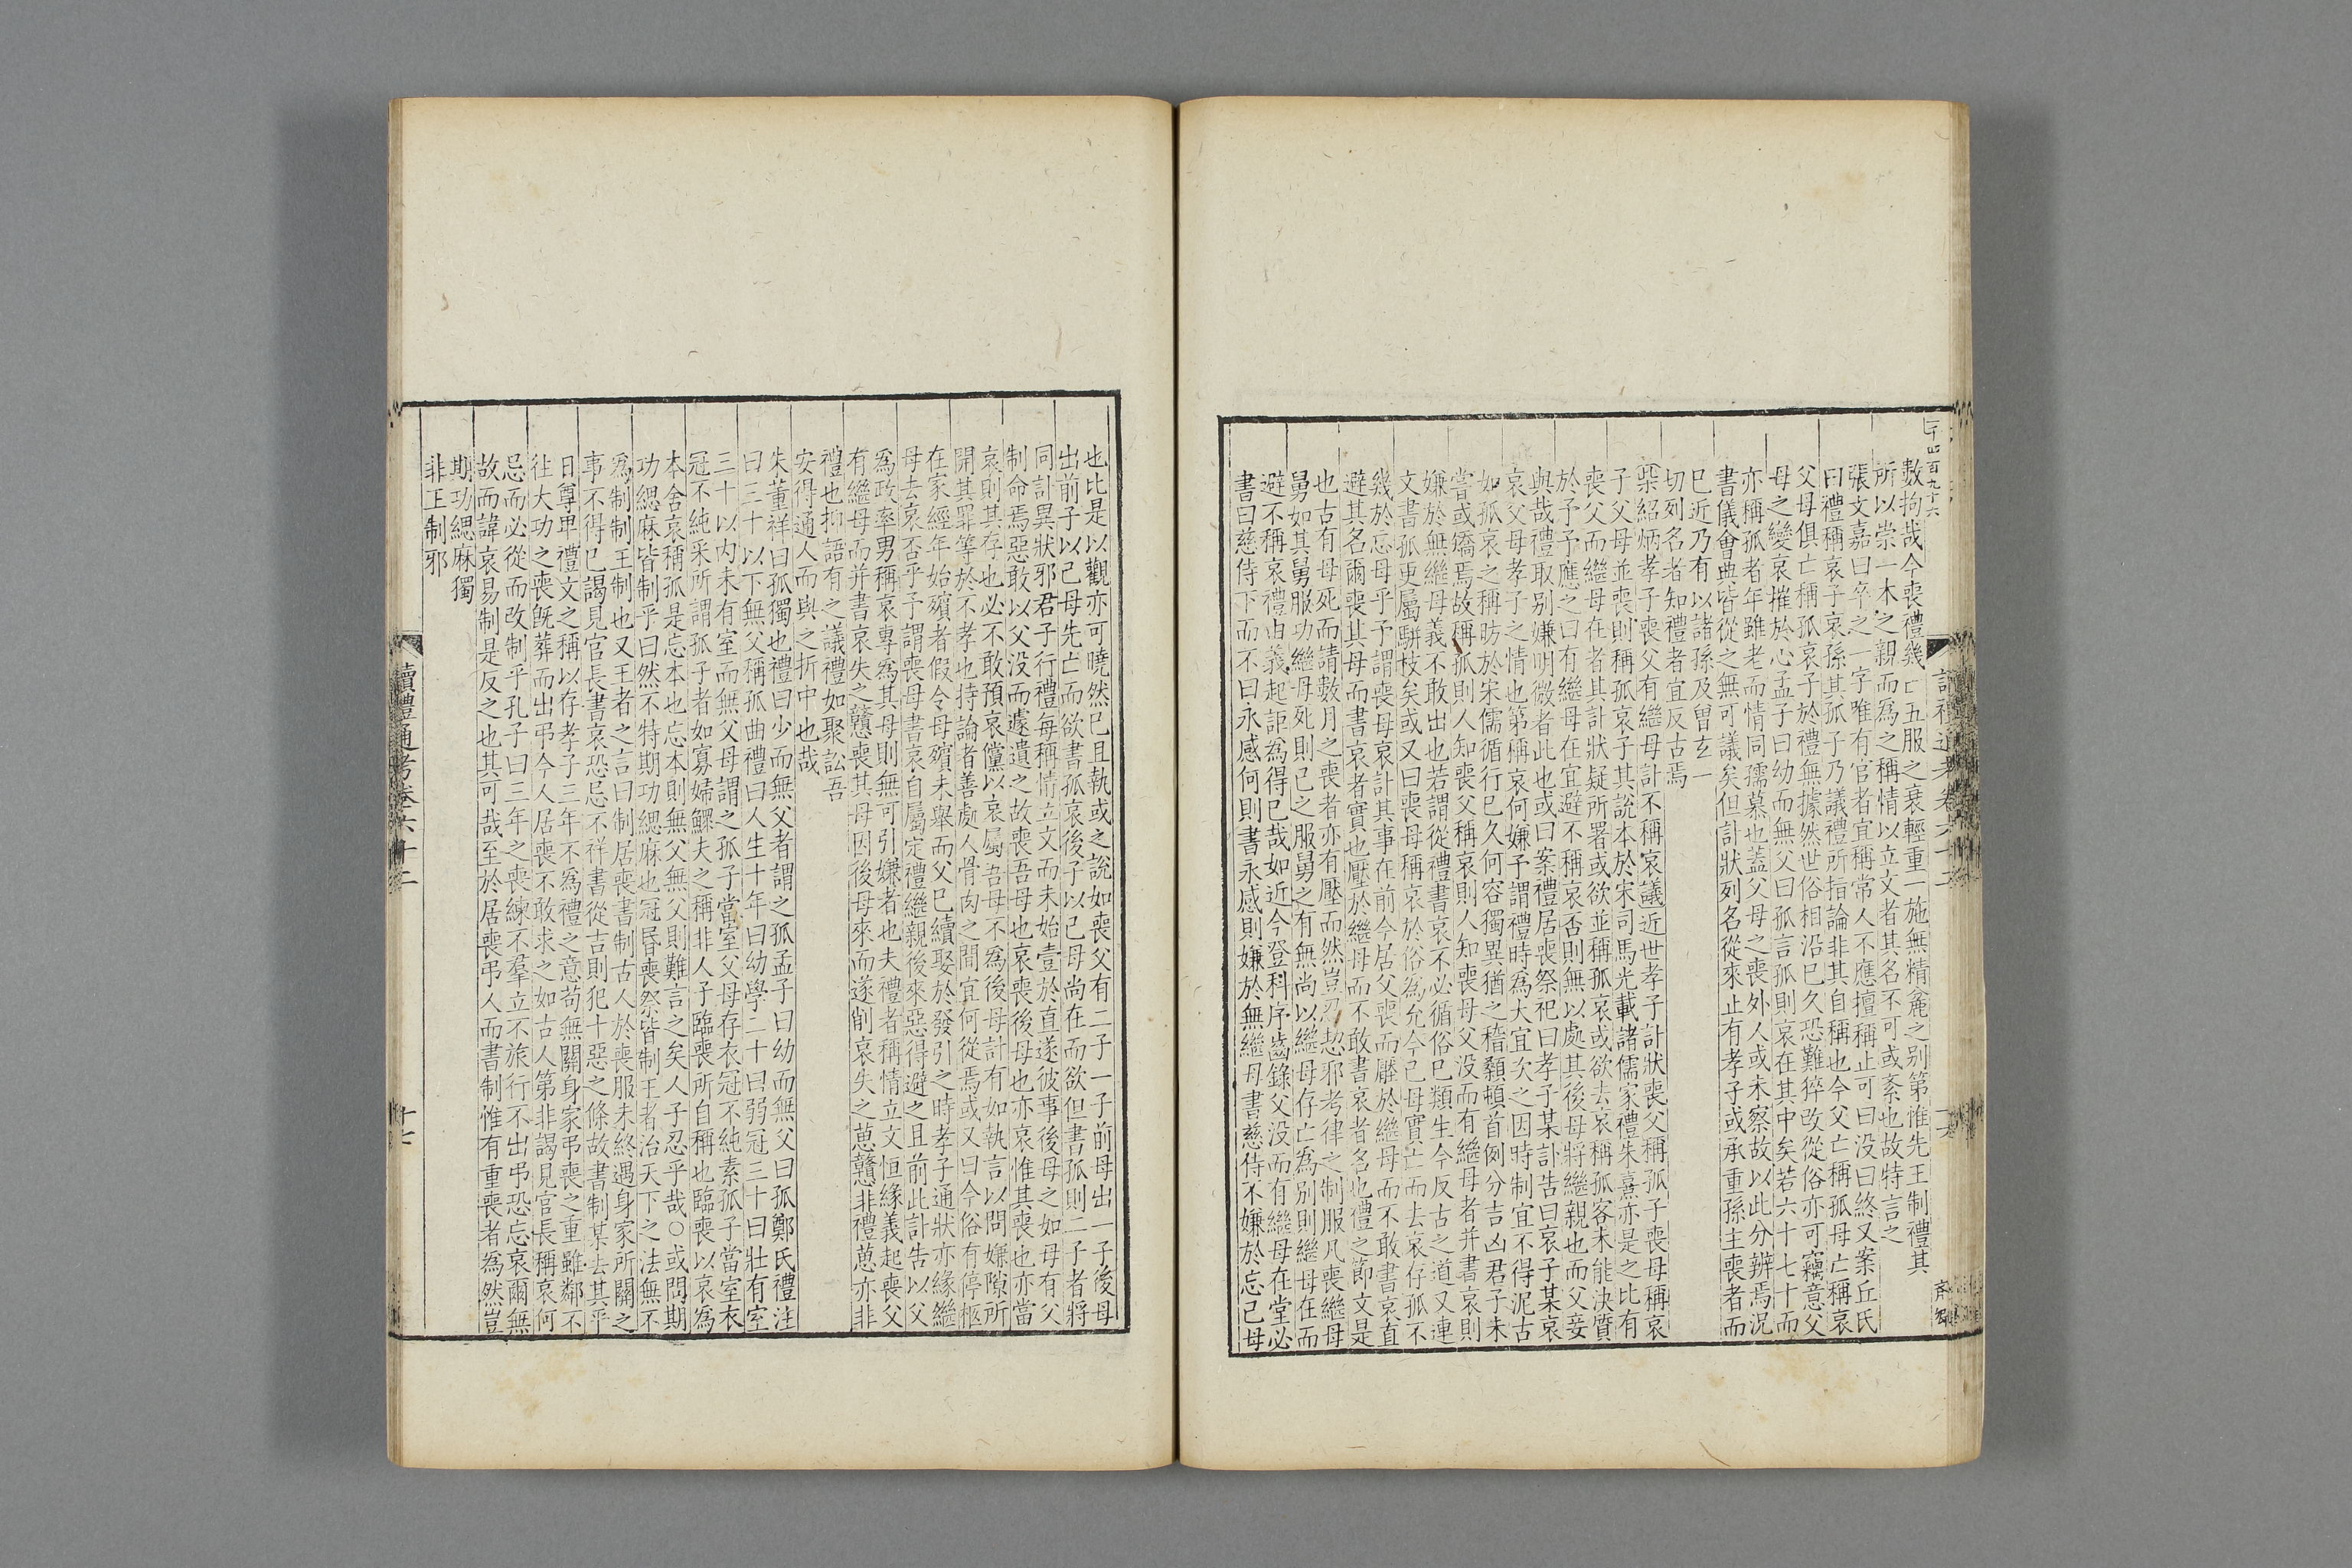 二十四百九十六
數拘哉今喪禮幾亡五服之衰輕重一施無精麄之别第惟先王制禮其
所以崇一木之親而為之稱情以立文者其名不可或紊也故特言之
張文嘉曰卒之一字唯有官者宜稱常人不應擅稱止可曰没曰終又案丘氏
曰禮稱哀子哀孫其孤子乃議禮所指論非其自稱也今父亡稱孤母亡稱哀
父母俱亡稱孤哀子於禮無據然世俗相沿已久恐難猝改從俗亦可竊意父
母之變哀摧於心孟子曰幼而無父曰孤言孤則哀在其中矣若六十七十而
亦稱孤者年雖老而情同孺慕也蓋父母之喪外人或未察故以此分辨焉况
書儀會典皆從之無可議矣但訃狀列名從來止有孝子或承重孫主喪者而
已近乃有以諸孫及曾玄一
切列名者知禮者宜反古焉
柴紹炳孝子喪父有繼母訃不稱哀議近世孝子訃狀喪父稱孤子喪母稱哀
子父母並喪則稱孤哀子其說本於宋司馬光載諸儒家禮朱熹亦是之比有
喪父而繼母在者其訃狀疑所署或欲並稱孤哀或欲去哀稱孤客未能決質
於予予應之曰有繼母在宜避不稱哀否則無以處其後母將繼親也而父妾
與哉禮取别嫌明微者此也或曰案禮居喪祭祀曰孝子某訃告曰哀子某哀
哀父母孝子之情也第稱哀何嫌予謂禮時為大宜次之因時制宜不得泥古
如孤哀之稱昉於宋儒循行已久何容獨異猶之稽顙頓首例分吉凶君子未
嘗或矯焉故稱孤則人知喪父稱哀則人知喪母父没而有繼母者并書哀則
嫌於無繼母義不敢出也若謂從禮書哀不必循俗已類生今反古之道又連
文書孤更屬駢枝矣或又曰喪母稱哀於俗為允今己母實亡而去哀存孤不
幾於忘母乎予謂喪母哀訃其事在前今居父喪而壓於繼母而不敢書哀直
避其名爾喪其母而書哀者實也壓於繼母而不敢書哀者名也禮之節文是
也古有母死而請數月之喪者亦有壓而然豈忍恝邪考律之制服凡喪繼母
舅如其舅服功繼母死則已之服舅之有無尚以繼母存亡為别則繼母在而
避不稱哀禮由義起詎為得已哉如近今登科序齒錄父没而有繼母在堂必
書曰慈侍下而不曰永感何則書永感則嫌於無繼母書慈侍不嫌於忘己母
也比是以觀亦可曉然已且執或之說如喪父有二子一子前母出一子後母
出前子以己母先亡而欲書孤哀後子以己母尚在而欲但書孤則二子者將
同訃異狀邪君子行禮每稱情立文而未始壹於直遂彼事後母之如母有父
制命焉惡敢以父没而遽遺之故喪吾母也哀喪後母也亦哀惟其喪也亦當
哀則其存也必不敢預哀儻以哀屬吾母不為後母訃有如執言以問嫌隙所
開其罪等於不孝也持論者善處人骨肉之間宜何從焉或又曰今俗有停柩
在家經年始殯者假令母殯未舉而父已續娶於發引之時孝子通狀亦緣繼
母去哀否乎予謂喪母書哀自屬定禮繼親後來惡得避之且前此訃告以父
為政率男稱哀專為其母則無可引嫌者也夫禮者稱情立文恒緣義起喪父
有繼母而并書哀失之戇喪其母因後母來而遂削哀失之葸戇非禮葸亦非
禮也抑語有之議禮如聚訟吾
安得通人而與之折中也哉
朱董祥曰孤獨也禮曰少而無父者謂之孤孟子曰幼而無父曰孤鄭氏禮注
曰三十以下無父稱孤曲禮曰人生十年曰幼學二十曰弱冠三十曰壯有室
三十以内未有室而無父母謂之孤子當室父母存衣冠不純素孤子當室衣
冠不純采所謂孤子者如寡婦鰥夫之稱非人子臨喪所自稱也臨喪以哀為
本舍哀稱孤是忘本也忘本則無父無父則難言之矣人子忍乎哉○或問期
功緦麻皆制乎曰然不特期功緦麻也冠昏喪祭皆制王者治天下之法無不
為制制王制也又王者之言曰制居喪書制古人於喪服未終遇身家所關之
事不得已謁見官長書哀恐忌不祥書從吉則犯十惡之條故書制某去其平
日尊卑禮文之稱以存孝子三年不為禮之意苟無關身家弔喪之重雖鄰不
往大功之喪旣葬而出弔今人居喪不敢求之如古人第非謁見官長稱哀何
忌而必從而改制乎孔子曰三年之喪練不羣立不旅行不出弔恐忘哀爾無
故而諱哀易制是反之也其可哉至於居喪弔人而書制惟有重喪者為然豈
期功緦麻獨
非王制邪
讀禮通考卷六十二
十七